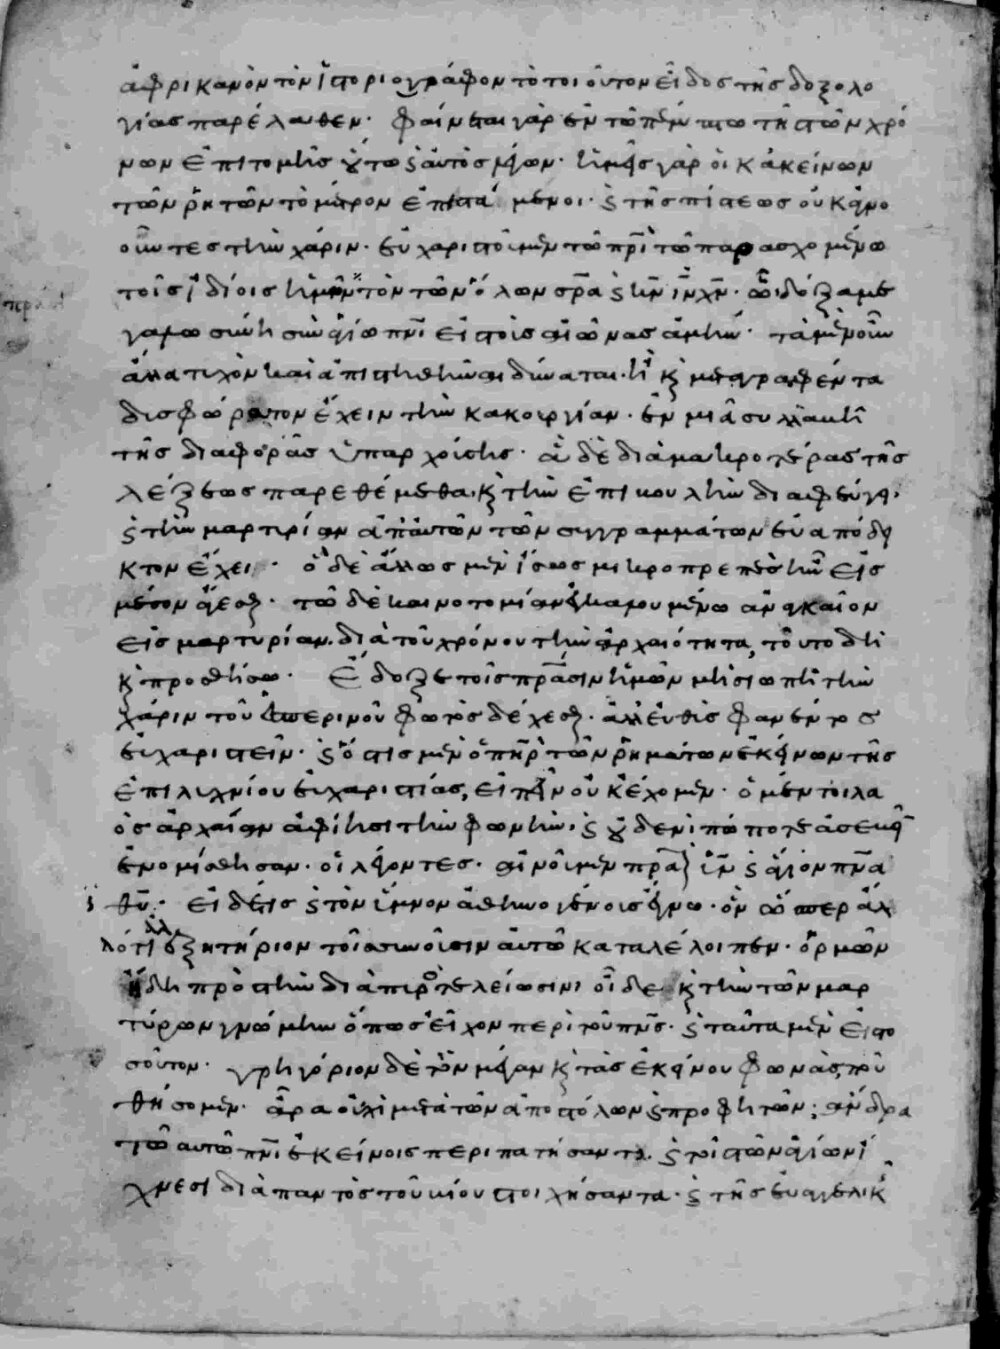 ἀφρικανὸν τὸν ἱστοριογράφον τὸ τοιοῦτον εἶδος τῆς δοξολο
γίας παρέλαθεν· φαίνεται γὰρ ἐν τῶ πέμπτω τῆς τῶν χρό
νων ἐπιτομῆς οὕτω καὶ αὐτὸς λέγων· ἡμεῖς γὰρ οἱ κἀκείνων
τῶν ῥητῶν τὸ μέτρον ἐπιστάμενοι· καὶ τῆς πίστεως οὐκ ἀγνο
οῦντες τὴν χάριν· εὐχαριστοῦμεν τῶ πρι τῶ παρασχομένω
τοῖς ἰδίοις ἡμῖν τὸν τῶν ὅλων σρα καὶ κν ιν χν· ὧ ἡ δόξα με
γαλωσύνη σὺν ἁγίω πνι εἰς τοὺς αἰῶνας ἀμήν· τὰ μὲν οὖν
ἄλλα τυχὸν καὶ ἀπιστηθῆναι δύναται· ἢ καὶ μεταγραφέντα
δισφώρατον ἔχειν τὴν κακουργίαν· ἐν μιᾶ συλλαβῆ
τῆς διαφορᾶς ὑπαρχούσης· ἃ δὲ διὰ μακροτέρας τῆς
λέξεως παρεθέμεθα· καὶ τὴν ἐπιβουλὴν διαφεύγει·
καὶ τὴν μαρτυρίαν ἀπ' αὐτῶν τῶν συγγραμμάτων εὐαπόδει
κτον ἔχει· ὃ δὲ ἄλλως μὲν ἴσως μικροπρεπὲς ἦν εἰς
μέσον ἄγεσθαι· τῶ δὲ καινοτομίαν ἐγκαλουμένω ἀναγκαῖον
εἰς μαρτυρίαν· διὰ τοῦ χρόνου τὴν ἀρχαιότητα, τοῦτο δὴ
καὶ προσθήσω· Ἔδοξε τοῖς πρασιν ἡμῶν μὴ σιωπῆ τὴν
χάριν τοῦ ἑσπερινοῦ φωτὸς δέχεσθαι· ἀλλ' εὐθὺς φανέντος
εὐχαριστεῖν· καὶ ὅστις μὲν ὁ πηρ τῶν ῥημάτων ἐκείνων τῆς
ἐπιλυχνίου εὐχαριστίας, εἰπεῖν οὐκ ἔχομεν· ὁ μέντοι λα
ὸς ἀρχαίαν ἀφίησι τὴν φωνήν· καὶ οὐδενὶ πώποτε ἀσεβεῖν
ἐνομίσθησαν· οἱ λέγοντες· αἰνοῦμεν πρα καὶ ιν καὶ ἅγιον πνα
θυ· εἰ δέ τις καὶ τὸν ὕμνον ἀθηνογένους ἔγνω· ὃν ὥσπερ ἄλ
λό τι ἐξητήριον τοῖς συνοῦσιν αὐτῶ καταλέλοιπεν· ὁρμῶν
ἤδη πρὸς τὴν διὰ πυρὸς τελείωσιν· οἶδε καὶ τὴν τῶν μαρ
τύρων γνώμην ὅπως εἶχον περὶ τοῦ πνς· καὶ ταῦτα μὲν εἰς το
σοῦτον· γρηγόριον δὲ τὸν μέγαν καὶ τὰς ἐκείνου φωνὰς, ποῦ
θήσομεν· ἆρα οὐχὶ μετὰ τῶν ἀποστόλων καὶ προφητῶν; ἄνδρα
τῶ αὐτῶ πνι ἐκείνοις περιπατήσαντα· καὶ τοῖς τῶν ἁγίων ἴ
χνεσι διὰ παντὸς τοῦ βίου στοιχήσαντα· καὶ τῆς εὐαγγελικῆς